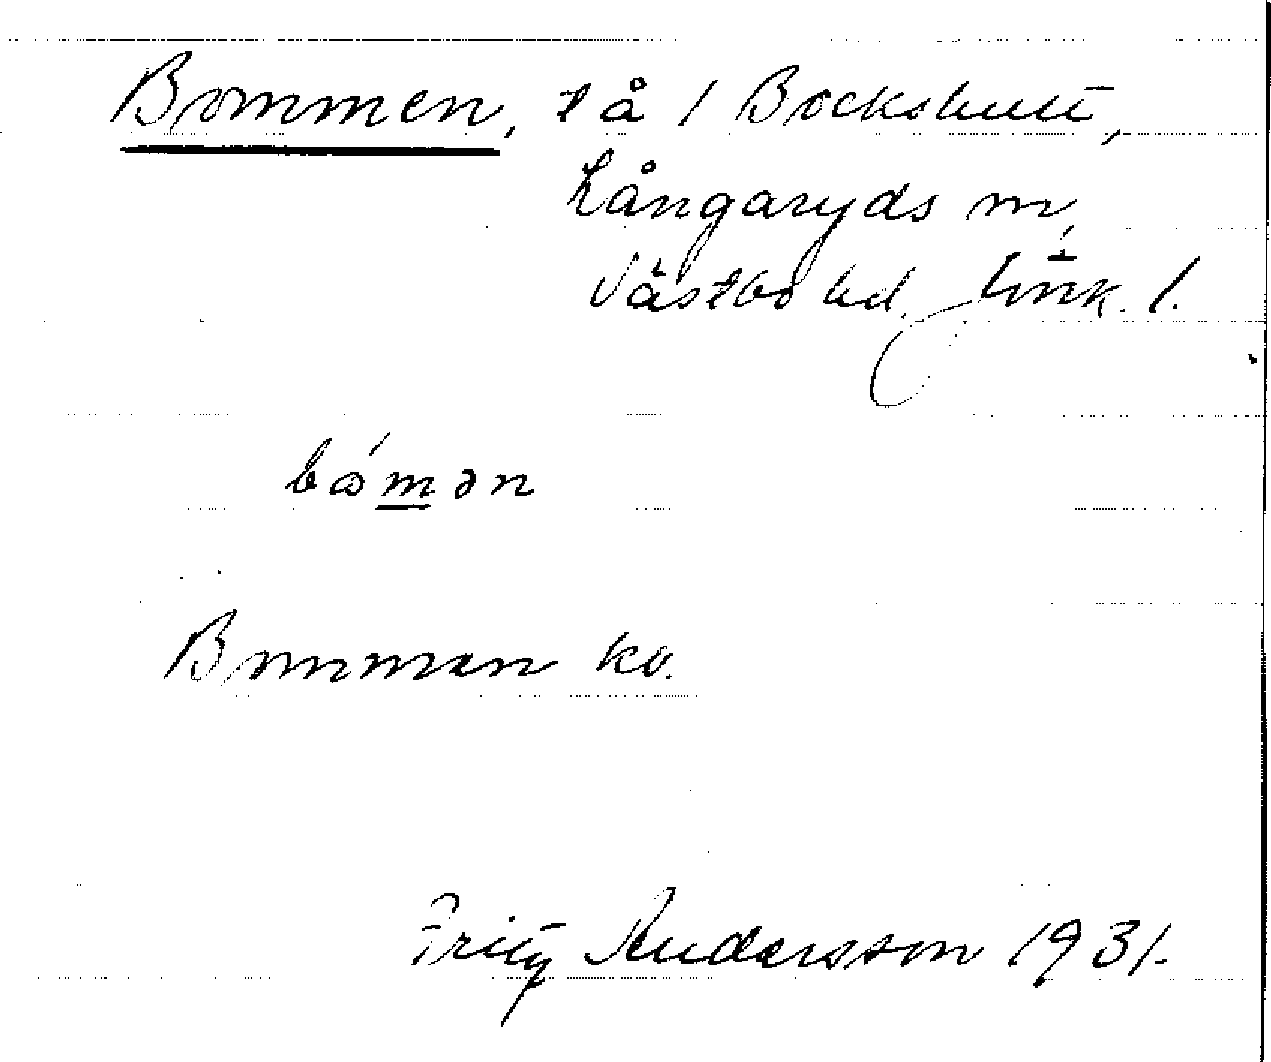 Bommen, tå / Bockshult,
Långaryds sn,
Västbo hd, Jönk. l.
bómən
Bommen ko.
Fritz Andersson 1931.